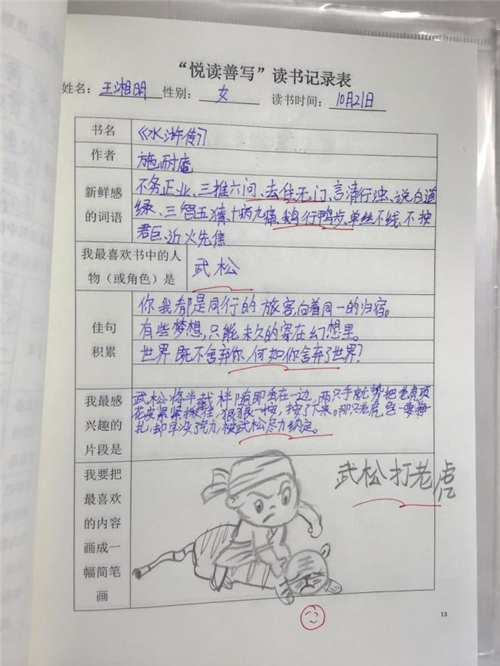 “悦读善写”读书记录表
姓名：王湘明 性别：女 读书时间：10月21日
书名 《水浒传》
作者 施耐庵
新鲜感的词语
不务正业、三推六问、去住无门、言清行浊、说白道
绿、三智五猜、十病九痛、鹅行鸭步、单丝不线、不按
君臣、近火先焦
我最喜欢书中的人物（或角色）是 武松
佳句积累
你我都是同行的旅客，向着同一的归宿。
有些梦想，只能永久的寄在幻想里。
世界既不舍弃你，何如你舍弃了世界？
我最感兴趣的片段是
武松将半截棒随即丢在一边，两只手就势把老虎顶
花皮紧紧揪住，狠狠一按，按了下来。那只老虎
扎，却早没了气力，被武松尽力纳定。
我要把最喜欢的内容画成一幅简笔画
武松打老虎
13